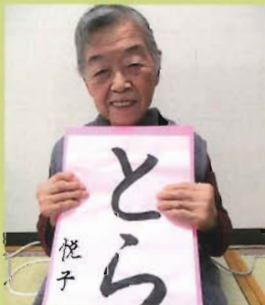 とら
悦子